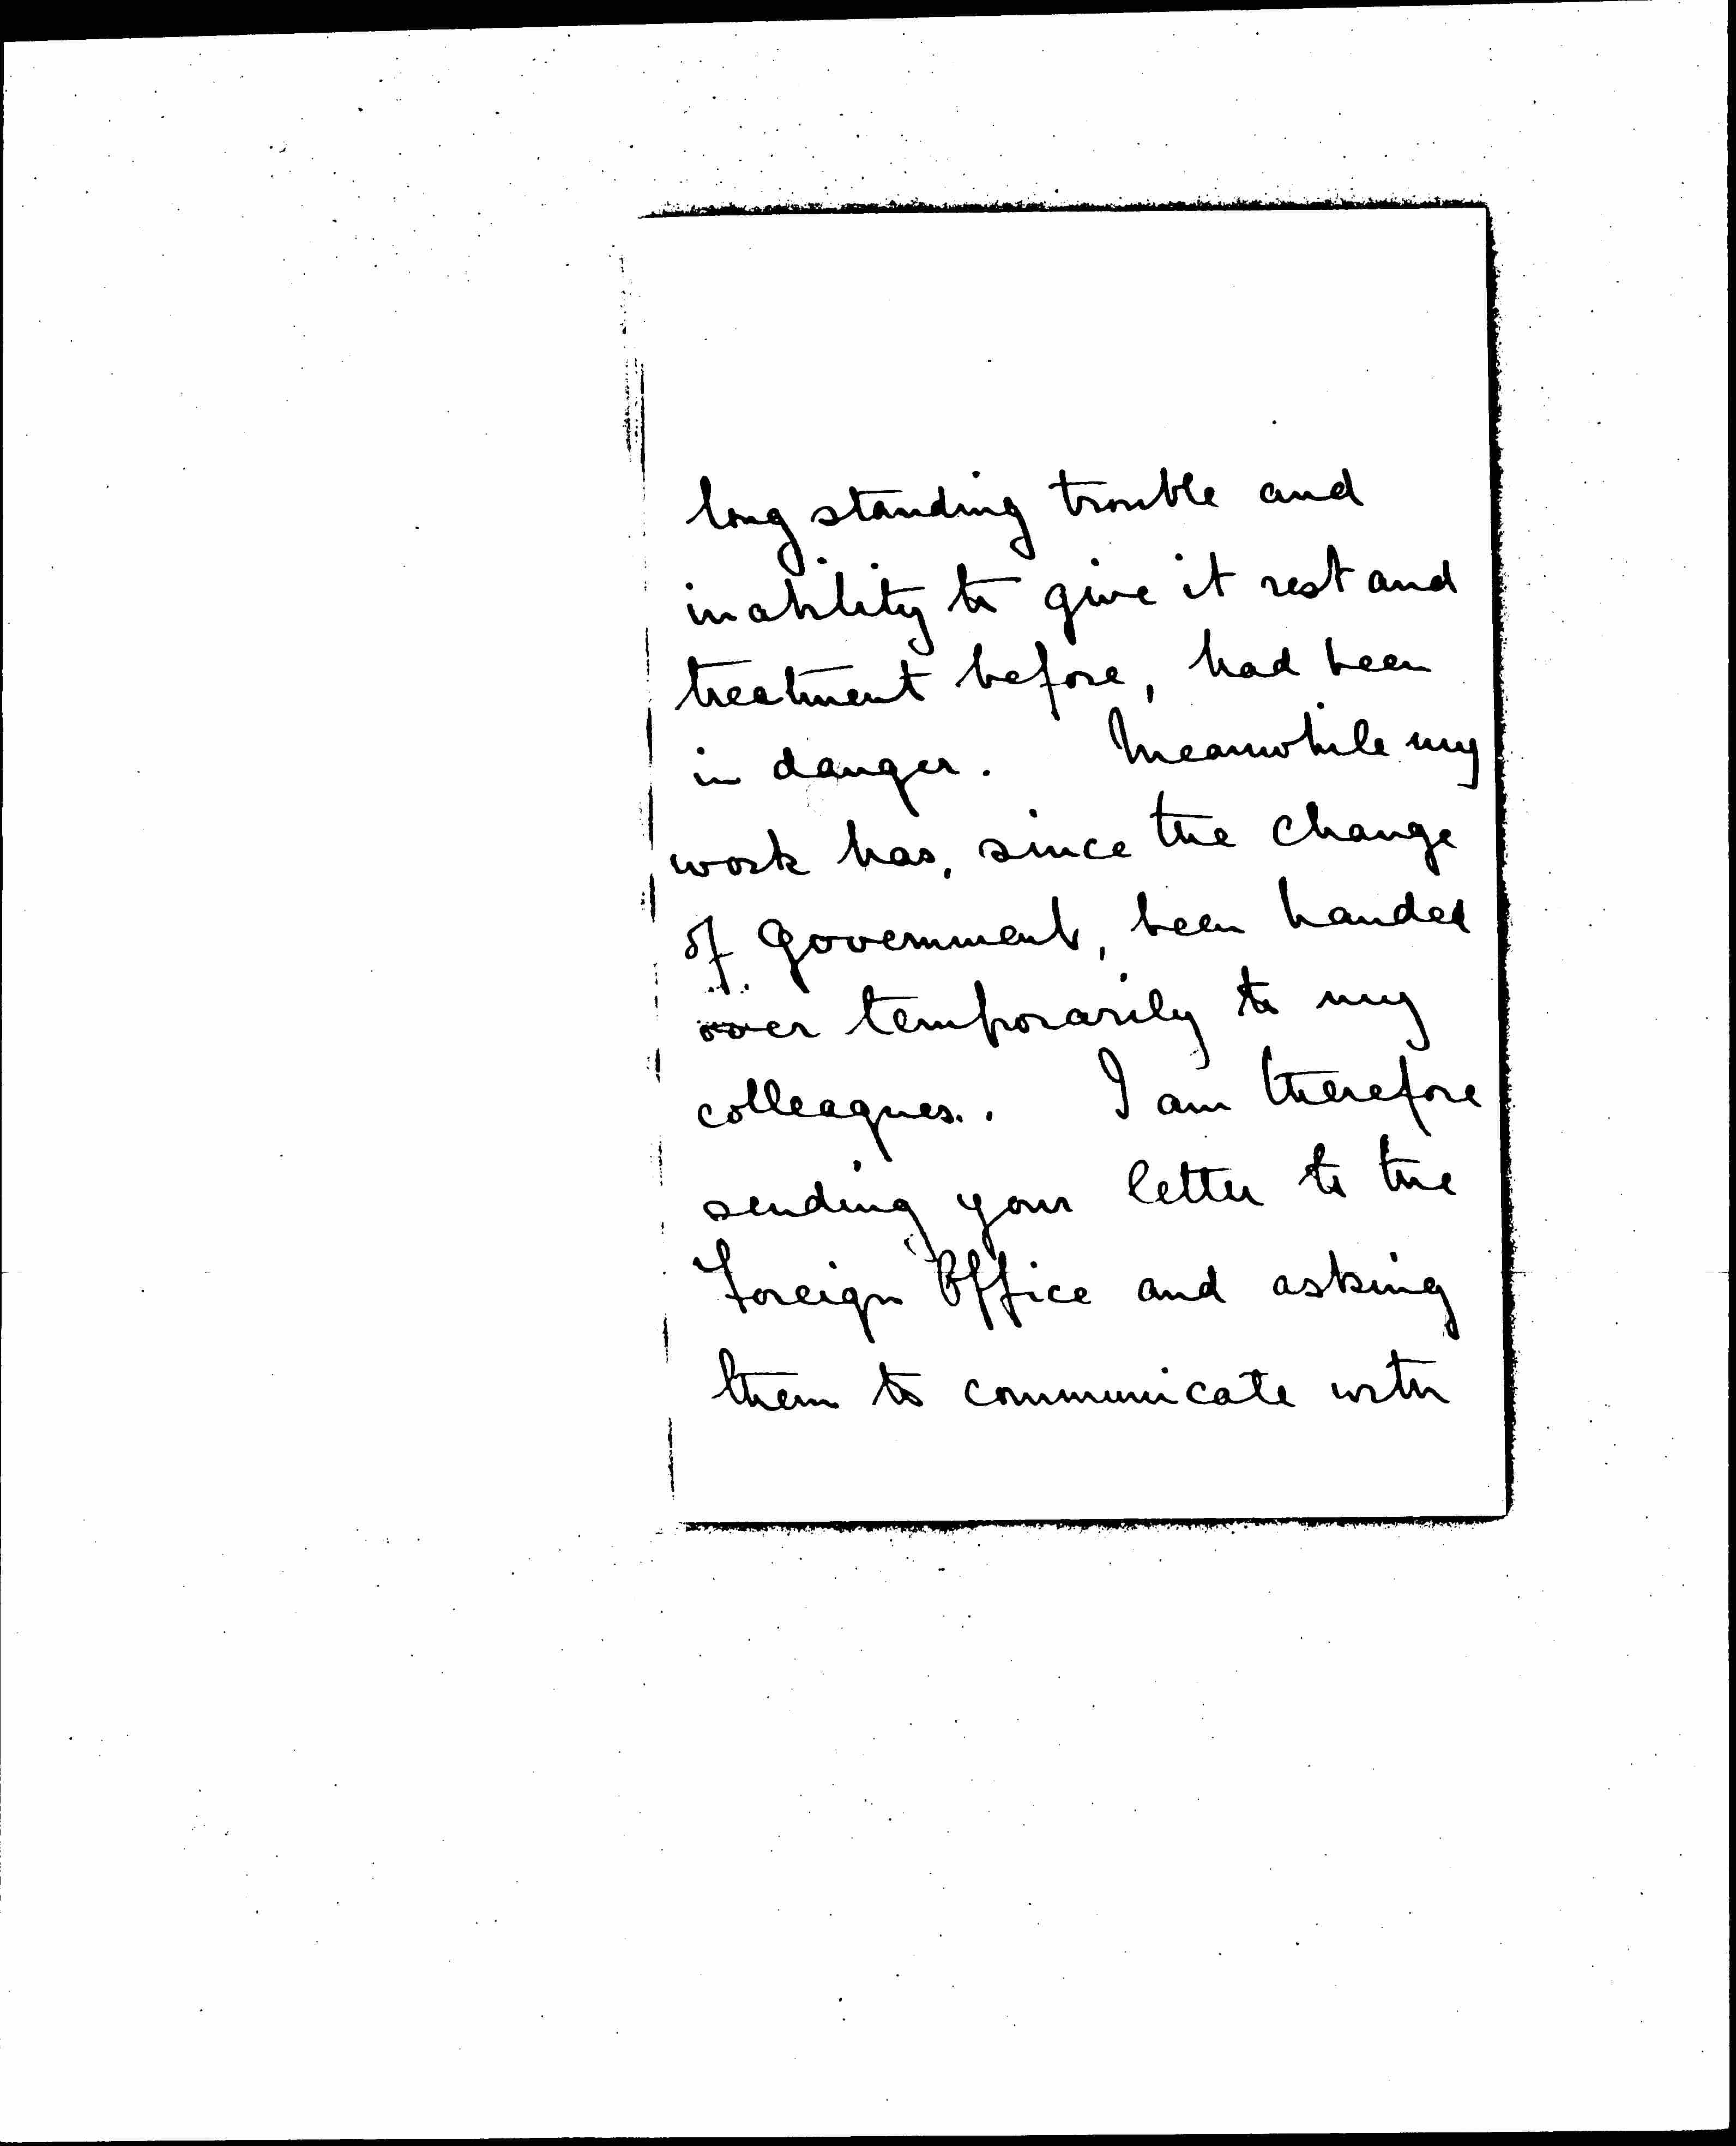 long standing trouble and
inability to give it rest and
treatment before, had been
in danger. Meanwhile my
work has, since the change
of government, been handed
over temporarily to my
colleagues. I am therefore
sending your letter to the
Foreign Office and asking
them to communicate with